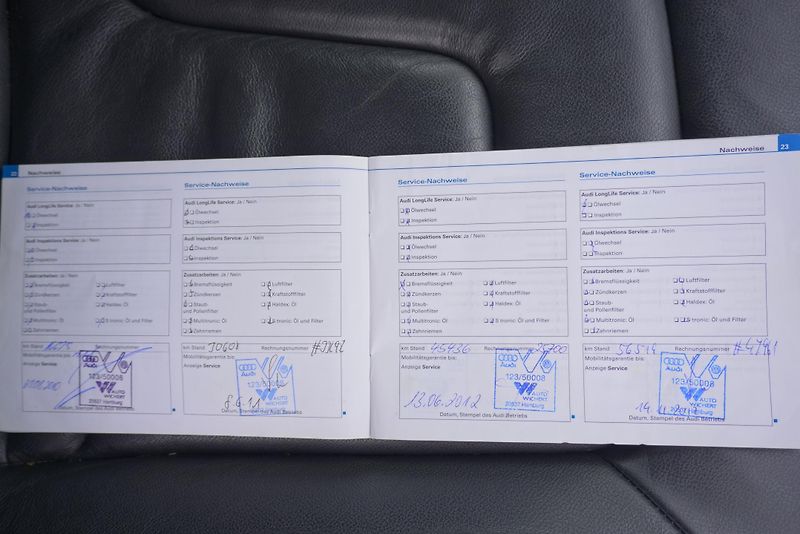 22 Nachweise
Service-Nachweise
Audi LongLife Service: Ja / Nein
Ölwechsel
Inspektion
Audi Inspektions Service: Ja / Nein
Ölwechsel
Inspektion
Zusatzarbeiten: Ja / Nein
Bremsflüssigkeit Luftfilter
Zündkerzen Kraftstofffilter
Staub- Haldex: Öl
und Pollenfilter
Multitronic: Öl S tronic: Öl und Filter
Zahnriemen
km Stand Rechnungsnummer
Mobilitätsgarantie bis:
Anzeige Service
Audi
123/50008
AUTO
WICHERT
20537 Hamburg
Datum, Stempel des Audi Betriebs
Service-Nachweise
Audi LongLife Service: Ja / Nein
Ölwechsel
Inspektion
Audi Inspektions Service: Ja / Nein
Ölwechsel
Inspektion
Zusatzarbeiten: Ja / Nein
Bremsflüssigkeit Luftfilter
Zündkerzen Kraftstofffilter
Staub- Haldex: Öl
und Pollenfilter
Multitronic: Öl S tronic: Öl und Filter
Zahnriemen
km Stand Rechnungsnummer
Mobilitätsgarantie bis:
Anzeige Service
Audi
123/50008
AUTO
WICHERT
20537 Hamburg
8.6.11
Datum, Stempel des Audi Betriebs
Nachweise 23
Service-Nachweise
Audi LongLife Service: Ja / Nein
Ölwechsel
Inspektion
Audi Inspektions Service: Ja / Nein
Ölwechsel
Inspektion
Zusatzarbeiten: Ja / Nein
Bremsflüssigkeit Luftfilter
Zündkerzen Kraftstofffilter
Staub- Haldex: Öl
und Pollenfilter
Multitronic: Öl S tronic: Öl und Filter
Zahnriemen
km Stand 45936 Rechnungsnummer
Mobilitätsgarantie bis:
Anzeige Service
Audi
123/50008
AUTO
WICHERT
20537 Hamburg
13.06.2012
Datum, Stempel des Audi Betriebs
Service-Nachweise
Audi LongLife Service: Ja / Nein
Ölwechsel
Inspektion
Audi Inspektions Service: Ja / Nein
Ölwechsel
Inspektion
Zusatzarbeiten: Ja / Nein
Bremsflüssigkeit Luftfilter
Zündkerzen Kraftstofffilter
Staub- Haldex: Öl
und Pollenfilter
Multitronic: Öl S tronic: Öl und Filter
Zahnriemen
km Stand Rechnungsnummer
Mobilitätsgarantie bis:
Anzeige Service
Audi
123/50008
AUTO
WICHERT
20537 Hamburg
Datum, Stempel des Audi Betriebs